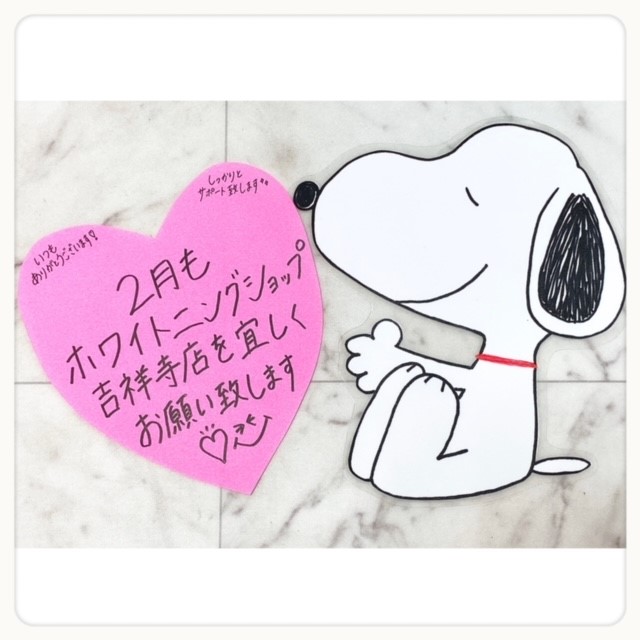 いつも
ありがとうございます!
しっかりと
サポート致します**
2月も
ホワイトニングショップ
吉祥寺店を宜しく
お願い致します